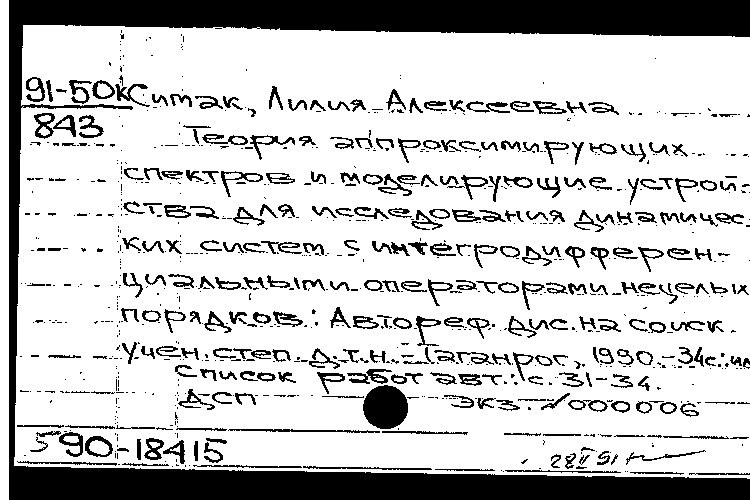 91-50к Ситак, Лилия Алексеевна
843
Теория аппроксимирующих
спектров и моделирующие устрой-
ства для исследования динамичес
ких систем с интегродифферен-
циальными операторами нецелых
порядков: Автореф. дис. на соиск.
учен. степ. д.т.н. - Таганрог, 1990.-34с: ил
Список работ авт.: с. 31-34.
ДСП экз. №000006
590-18415
28 II 91